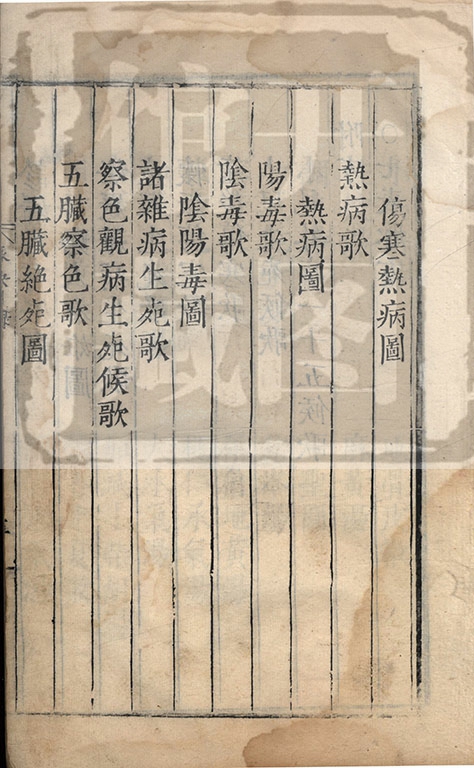 傷寒熱病圖
熱病歌
熱病圖
陽毒歌
陰毒歌
陰陽毒圖
諸雜病生𣦸歌
察色觀病生𣦸候歌
五臟察色歌
五臟絶𣦸圖